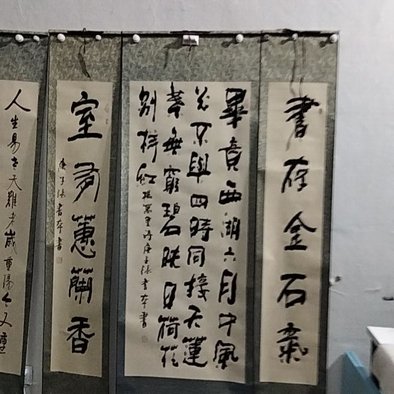 書存金石氣
畢竟西湖六月中風
光不與四時同接天蓮
葉無窮碧映日荷花
別樣紅 楊萬里詩庚子
室有蕙蘭香
庚子
人生易老天難老歲重陽今又重